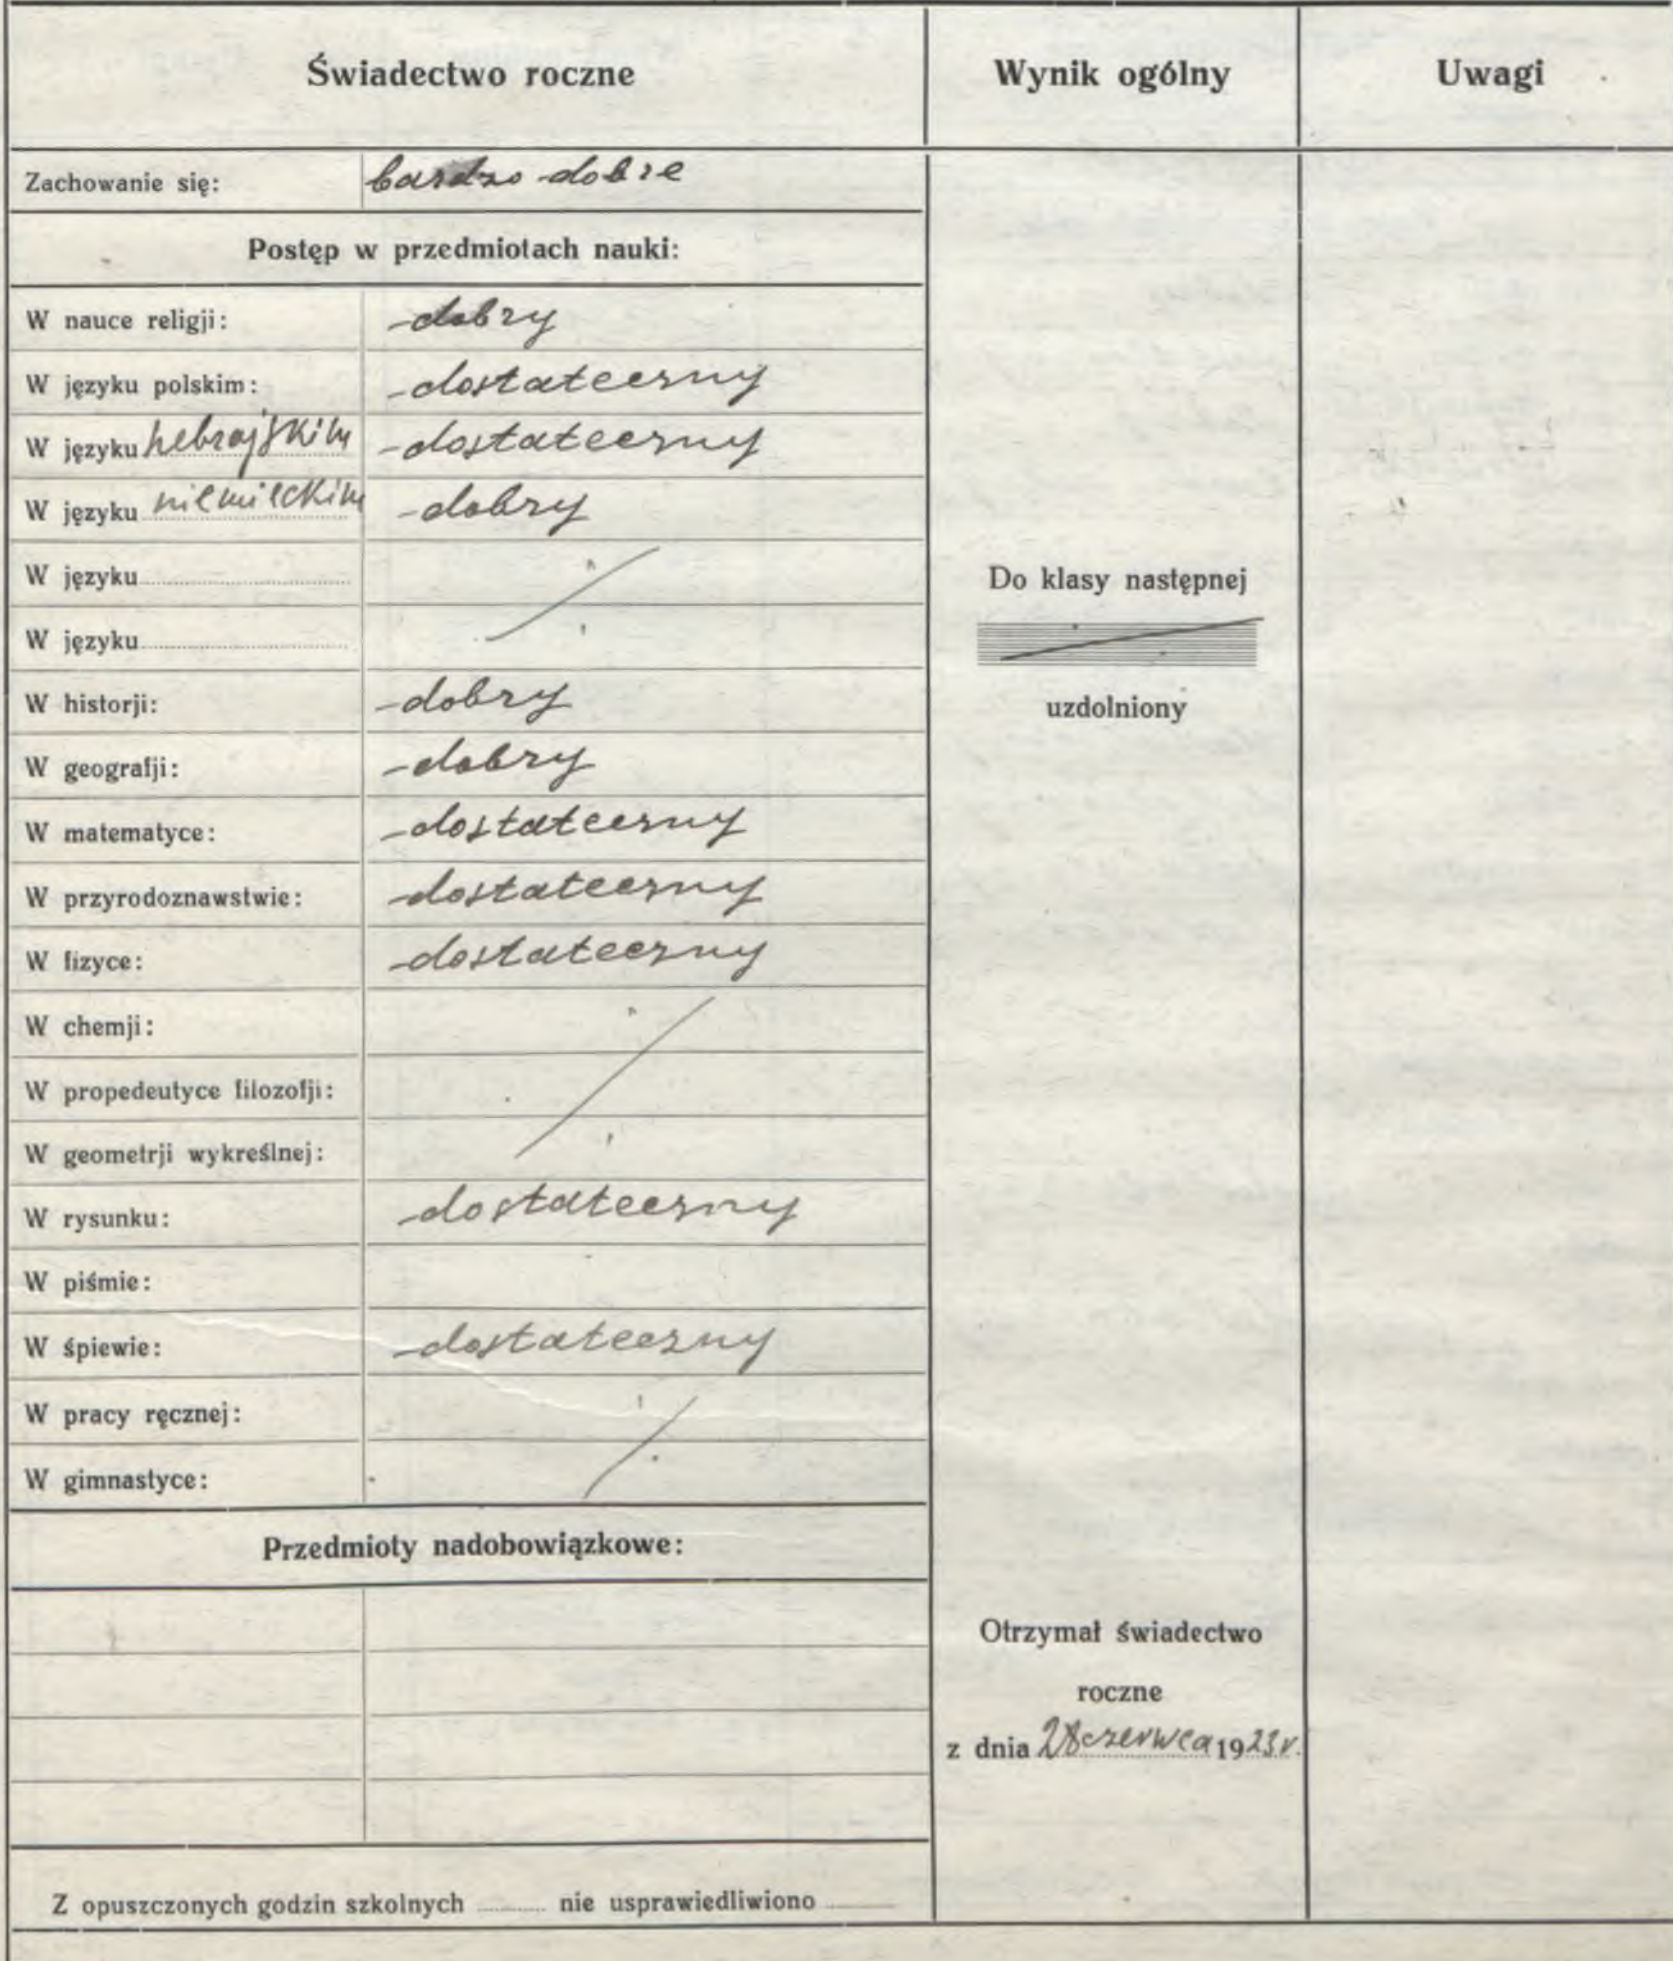 Świadectwo roczne Wynik ogólny Uwagi
Zachowanie się: bardzo dobre
Postęp w przedmiotach nauki:
W nauce religji: dobry
W języku polskim: dostateczny
W języku hebrajskim dostateczny
W języku niemieckim dobry
W języku
W języku
W historji: dobry
W geografji: dobry
W matematyce: dostateczny
W przyrodoznawstwie: dostateczny
W fizyce: dostateczny
W chemji:
W propedeutyce filozofji:
W geometrji wykreślnej:
W rysunku: dostateczny
W piśmie:
W śpiewie: dostateczny
W pracy ręcznej:
W gimnastyce:
Przedmioty nadobowiązkowe:
Z opuszczonych godzin szkolnych nie usprawiedliwiono
Do klasy następnej
uzdolniony
Otrzymał świadectwo
roczne
z dnia 28 czerwca 1923 r.